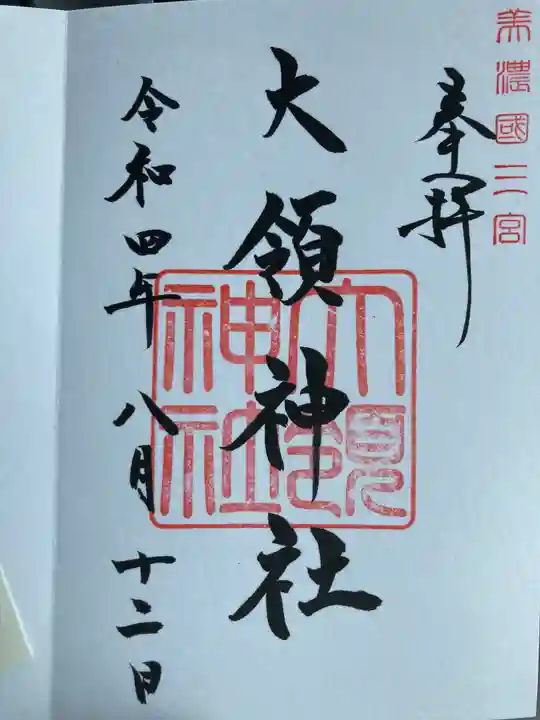 美濃國二宮
奉拝
大領神社
大領神社
令和四年八月十二日